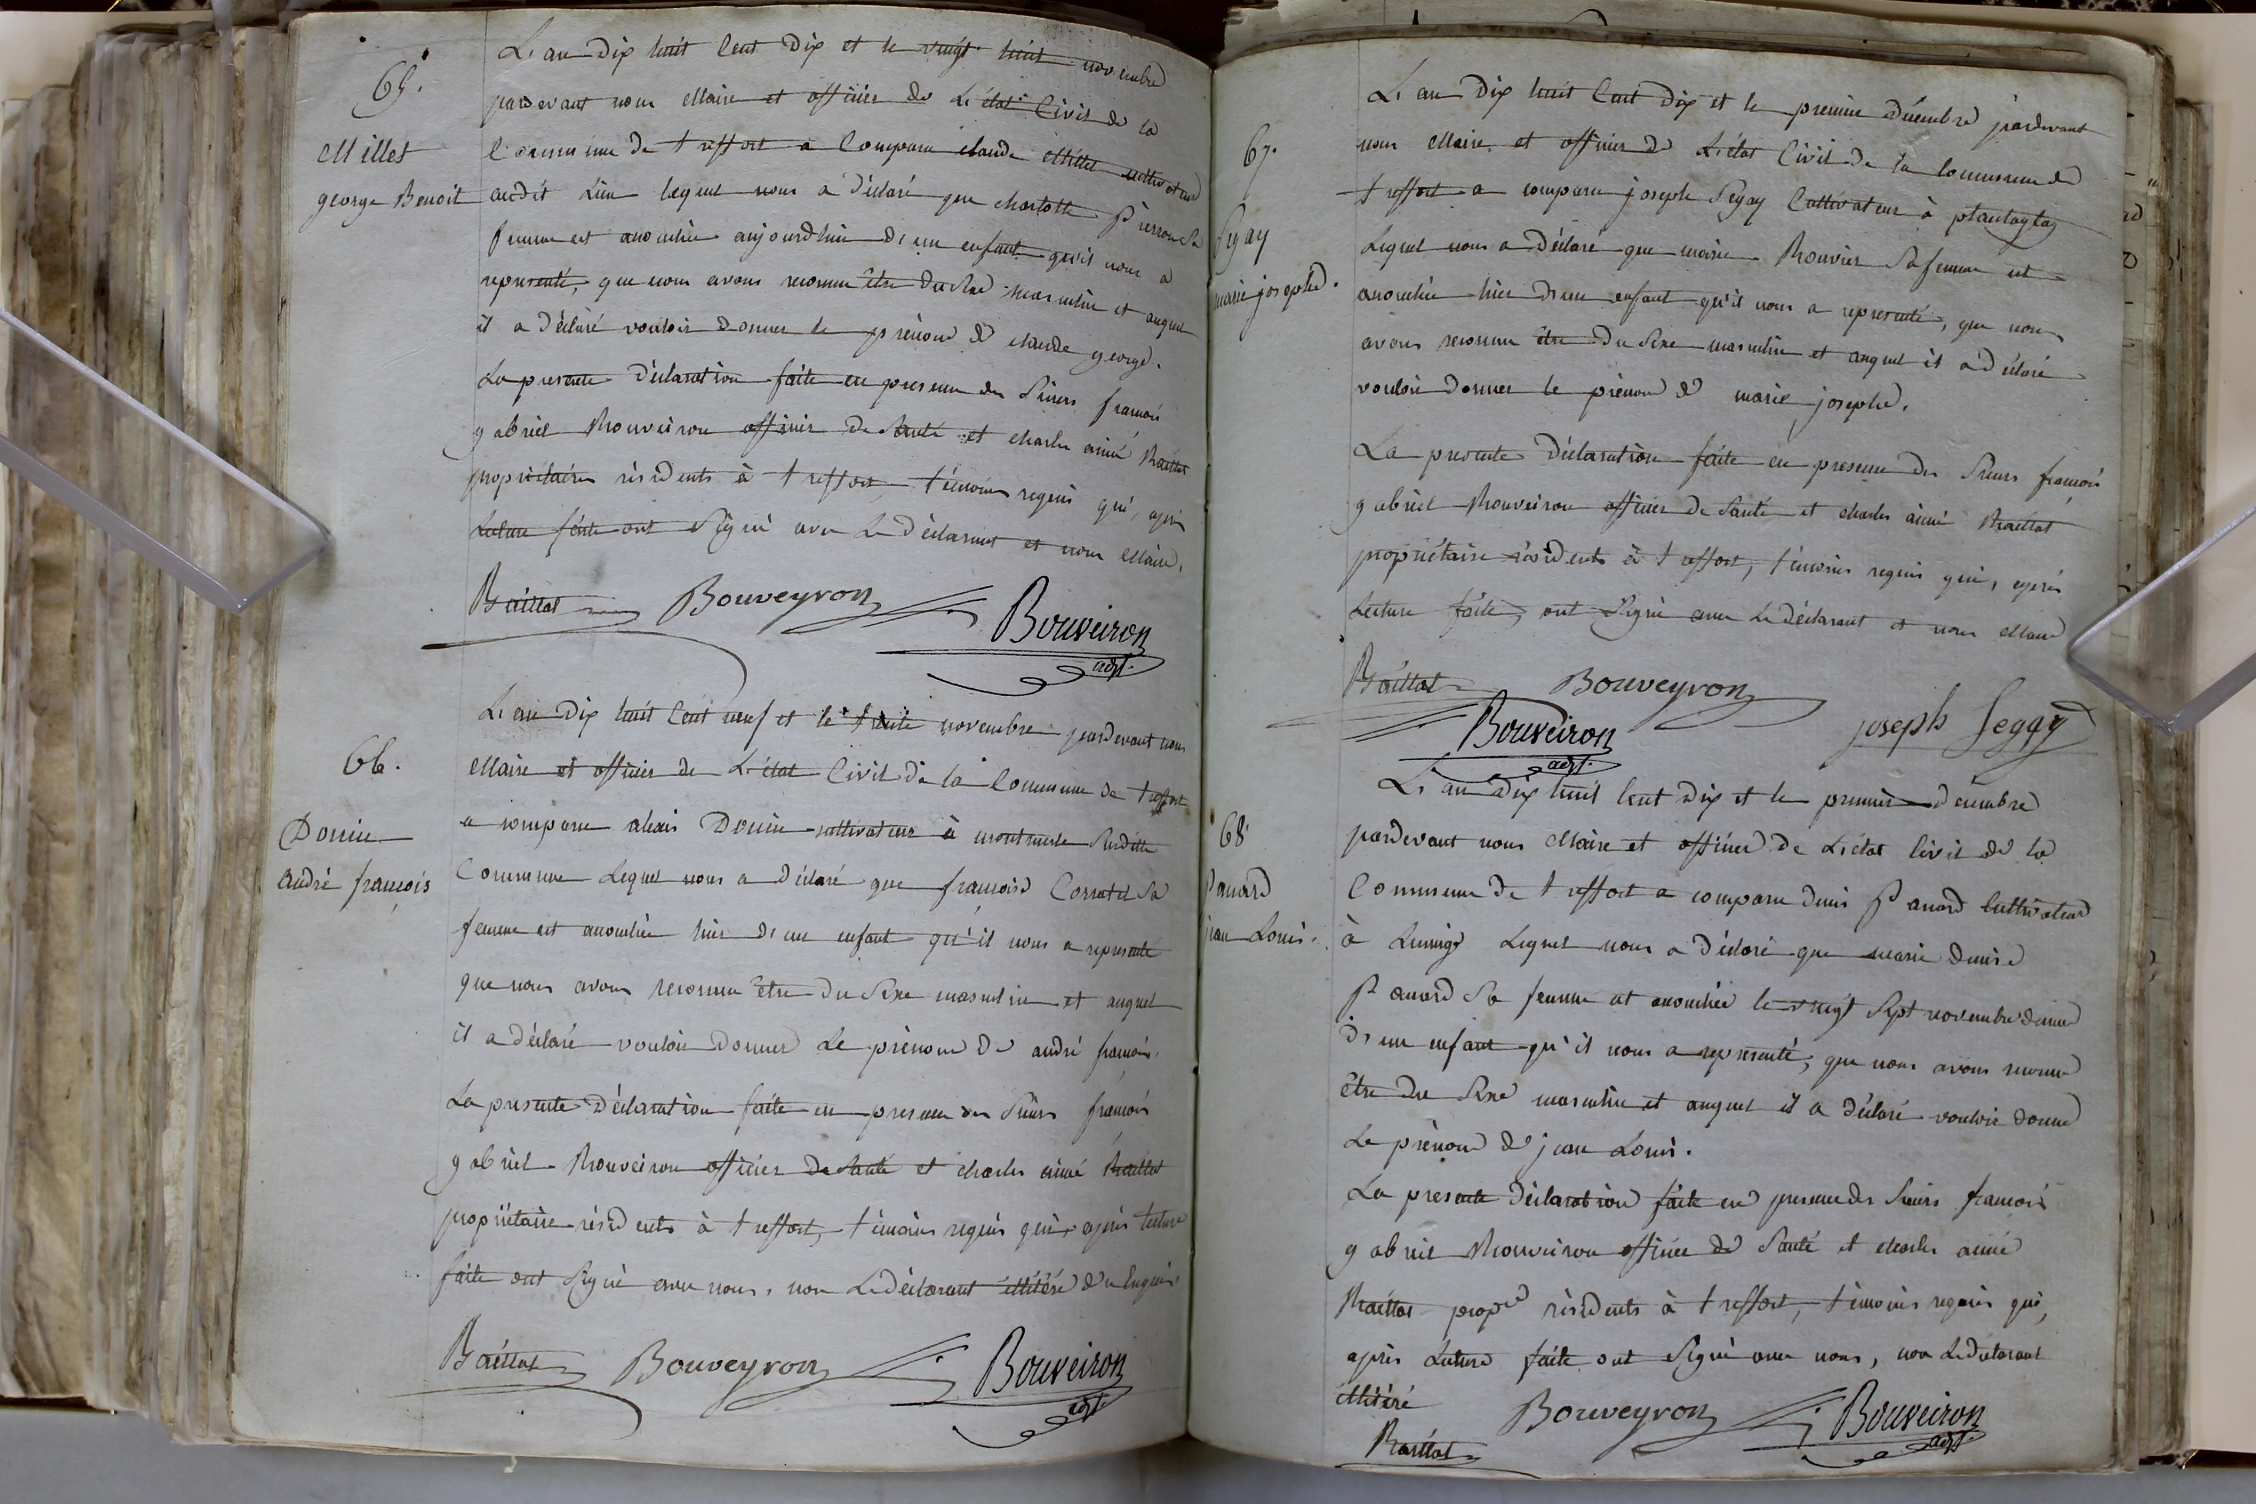 65.
Millet
george Benoit
L'an Dix huit Cent Dix et le vingt huit novembre
pardevant nous Maire et officier de L'état Civil de la
Commune de treffort a Comparu claude Millet cultivateur
audit Lieu lequel nous a déclaré que charlotte pierron Sa
femme est accouchée aujourdhui d'un enfant qu'il nous a
représenté, que nous avons reconnu être du Sexe masculin et auquel
il a déclaré vouloir Donner le prénom de claude george.
La presente Déclaration faite en presence des Sieurs françois
gabriel Bouveiron officier de Santé et charles aimé Baillat
propriétaires résidents à treffort, témoins requis qui, après
Lecture faite ont Signé avec Le Déclarant et nous Maire.
Baillat Bouveyron Bouveiron
adjt.
66.
Donin
andré françois
L'an Dix huit Cent neuf et le trente novembre pardevant nous
Maire et officier de L'état Civil de la Commune de treffort
a comparu alexis Donin cultivateur à montmerle Susditte
Commune Lequel nous a déclaré que françoise Sa
femme est accouchée hier d'un enfant qu'il nous a representé
que nous avons reconnu être du Sexe masculin et auquel
il a déclaré vouloir Donner Le prénom De andré françois.
La presente Déclaration faite en presence des Sieurs françois
gabriel Bouveiron officier de Santé et charles aimé Baillat
propriétaire résidents à treffort, témoins requis qui, après Lecture
faite ont Signé avec nous, non Le déclarant illitéré de ce Enquis
Baillat Bouveyron Bouveiron
adjt.
67.
Segay
marie josephe.
L'an Dix huit Cent Dix et le premier Décembre pardevant
nous Maire et officier de L'état Civil de la Commune de
treffort a comparu joseph Segay Cultivateur à plantaglay
Lequel nous a Déclaré que marie Bouvier Sa femme est
accouchée hier d'un enfant qu'il nous a representé, que nous
avons reconnu être du Sexe masculin et auquel il a déclaré
vouloir Donner le prénom de marie josephe.
La presente Déclaration faite en presence des Sieurs françois
gabriel Bouveiron officier de Santé et charles aimé Baillat
propriétaire résidents à treffort, témoins requis qui, après
Lecture faite, ont Signé avec Le déclarant et nous Maire
Baillat Bouveyron
Bouveiron joseph Segay
adjt.
68.
Panard
jean Louis.
L'an Dix huit Cent Dix et le premier décembre
pardevant nous Maire et officier de L'état Civil de la
Commune de treffort a comparu denis Panard Cultivateur
à Lucinges Lequel nous a déclaré que marie denise
Panard Sa femme est accouchée le vingt Sept novembre dernier
d'un enfant qu'il nous a representé, que nous avons reconnu
être du Sexe masculin et auquel il a déclaré vouloir donner
Le prénom de jean Louis.
La presente Déclaration faite en presence des Sieurs françois
gabriel Bouveiron officier de Santé et charles aimé
Baillat propre résidents à treffort, témoins requis qui,
après Lecture faite ont Signé avec nous, non Le déclarant
illitéré
Baillat Bouveyron Bouveiron
adjt.